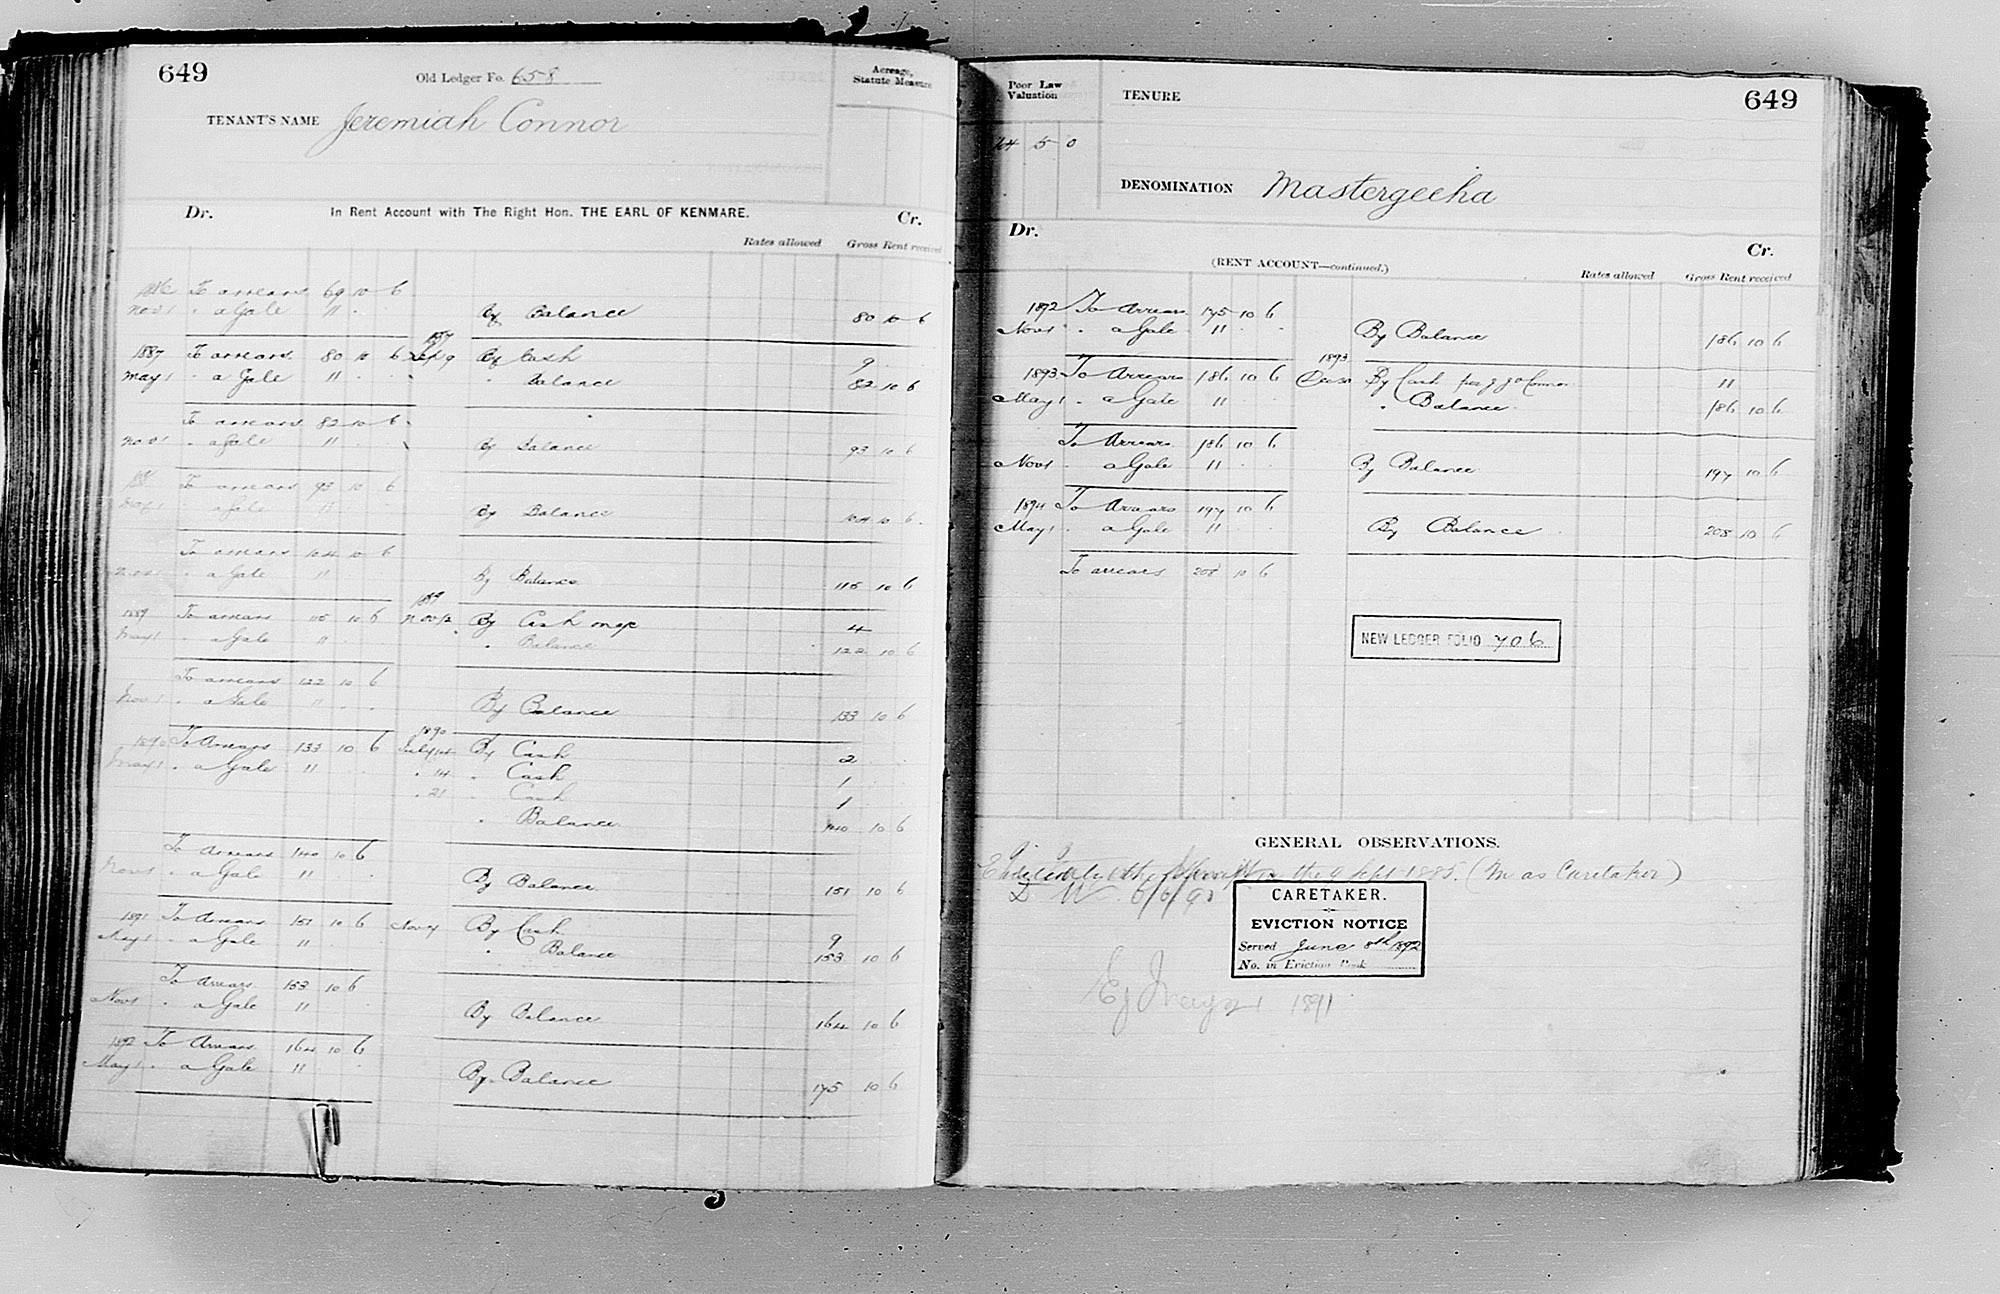 649
Old Ledger Fo. 658
Acreage, Statute Measure
TENANT'S NAME Jeremiah Connor
Dr. In Rent Account with The Right Hon. THE EARL OF KENMARE. Cr.
Rates allowed Gross Rent received
1886 To arrears 69 10 6
Nov 1 " a Gale 11 By Balance 80 10 6
1887 To arrears 80 10 6 1887 Sept 9 By Cash 9
May 1 " a Gale 11 " Balance 82 10 6
To arrears 82 10 6
Nov 1 " a Gale 11 By Balance 93 10 6
188 To arrears 93 10 6
May 1 " a Gale 11 By Balance 104 10 6
To arrears 104 10 6
Nov 1 " a Gale 11 By Balance 115 10 6
1889 To arrears 115 10 6 1889 Nov 12 By Cash 4
May 1 " a Gale 11 " Balance 122 10 6
To arrears 122 10 6
Nov 1 " a Gale 11 By Balance 133 10 6
1890 To Arrears 133 10 6 1890 July By Cash 2
May 1 " a Gale 11 " 14 " Cash 1
" 21 " Cash 1
" Balance 140 10 6
To Arrears 140 10 6
Nov 1 " a Gale 11 By Balance 151 10 6
1891 To Arrears 151 10 6 Nov 4 By Cash 9
May 1 " a Gale 11 " Balance 153 10 6
To Arrears 153 10 6
Nov 1 " a Gale 11 By Balance 164 10 6
1892 To Arrears 164 10 6
May 1 " a Gale 11 By Balance 175 10 6
Poor Law Valuation
TENURE
649
5 0
DENOMINATION Mastergeeha
Dr. Cr.
(RENT ACCOUNT—continued.)
Rates allowed Gross Rent received
1892 To Arrears 175 10 6
Nov 1 " a Gale 11 By Balance 186 10 6
1893 To Arrears 186 10 6 1893 Dec 30 By Cash per J J O'Connor 11
May 1 " a Gale 11 " Balance 186 10 6
To Arrears 186 10 6
Nov 1 a Gale 11 By Balance 197 10 6
1894 To Arrears 197 10 6
May 1 " a Gale 11 By Balance 208 10 6
To arrears 208 10 6
NEW LEDGER FOLIO 706
GENERAL OBSERVATIONS.
the 9 Sept 1885. (M as Caretaker)
CARETAKER.
EVICTION NOTICE
Served June 8th 1892
No. in Eviction Book
1891